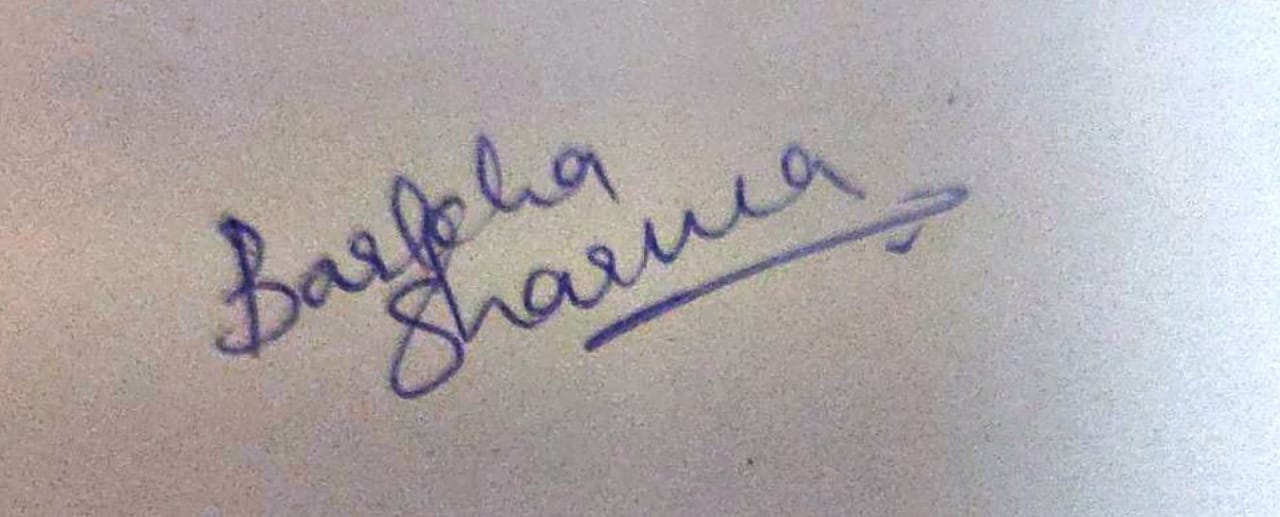 Barsha
Sharma